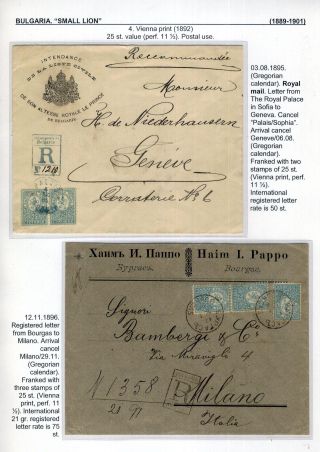 BULGARIA. "SMALL LION"
(1889-1901)
4. Vienna print (1892)
25 st. value (perf. 11 ½). Postal use.
INTENDANCE
DE LA LISTE CIVILE
DE SON ALTESSE ROYALE LE PRINCE
DE BULGARIE
Recommandée
Monsieur
H. de Niederhausern
Genève
Corraterie No 6
R
03.08.1895.
(Gregorian
calendar). Royal
mail. Letter from
The Royal Palace
in Sofia to
Geneva. Cancel
"Palais/Sophia".
Arrival cancel
Geneve/06.08.
(Gregorian
calendar).
Franked with
two stamps of
25 st.
(Vienna print,
perf. 11
½).
International
registered letter
rate is 50 st.
12.11.1896.
Registered letter
from Bourgas to
Milano. Arrival
cancel
Milano/29.11.
(Gregorian
calendar).
Franked with
three stamps of
25 st. (Vienna
print, perf. 11
½). International
21 gr. registered
letter rate is 75
st.
Хаимъ И. Паппо
Бургасъ.
Haim I. Pappo
Bourgas.
Signor
Bamberg & C'
Via Miraviglio 4
Milano
Italia
N 1358
R